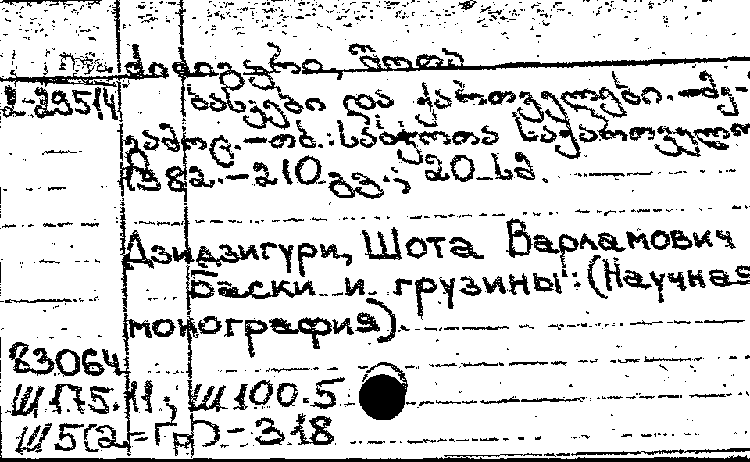 ძიძიგური, შოთა
2-295/4 ბასკები და ქართველები. - მე-
გამოც. - თბ.: საბჭოთა საქართველო
1982. - 210 გვ.; 20 სმ.
Дзидзигури, Шота Варламович
Баски и грузины: (Научная
монография).
83064
Ш175.11; Ш100.5
Ш5(2=Гр) - 318